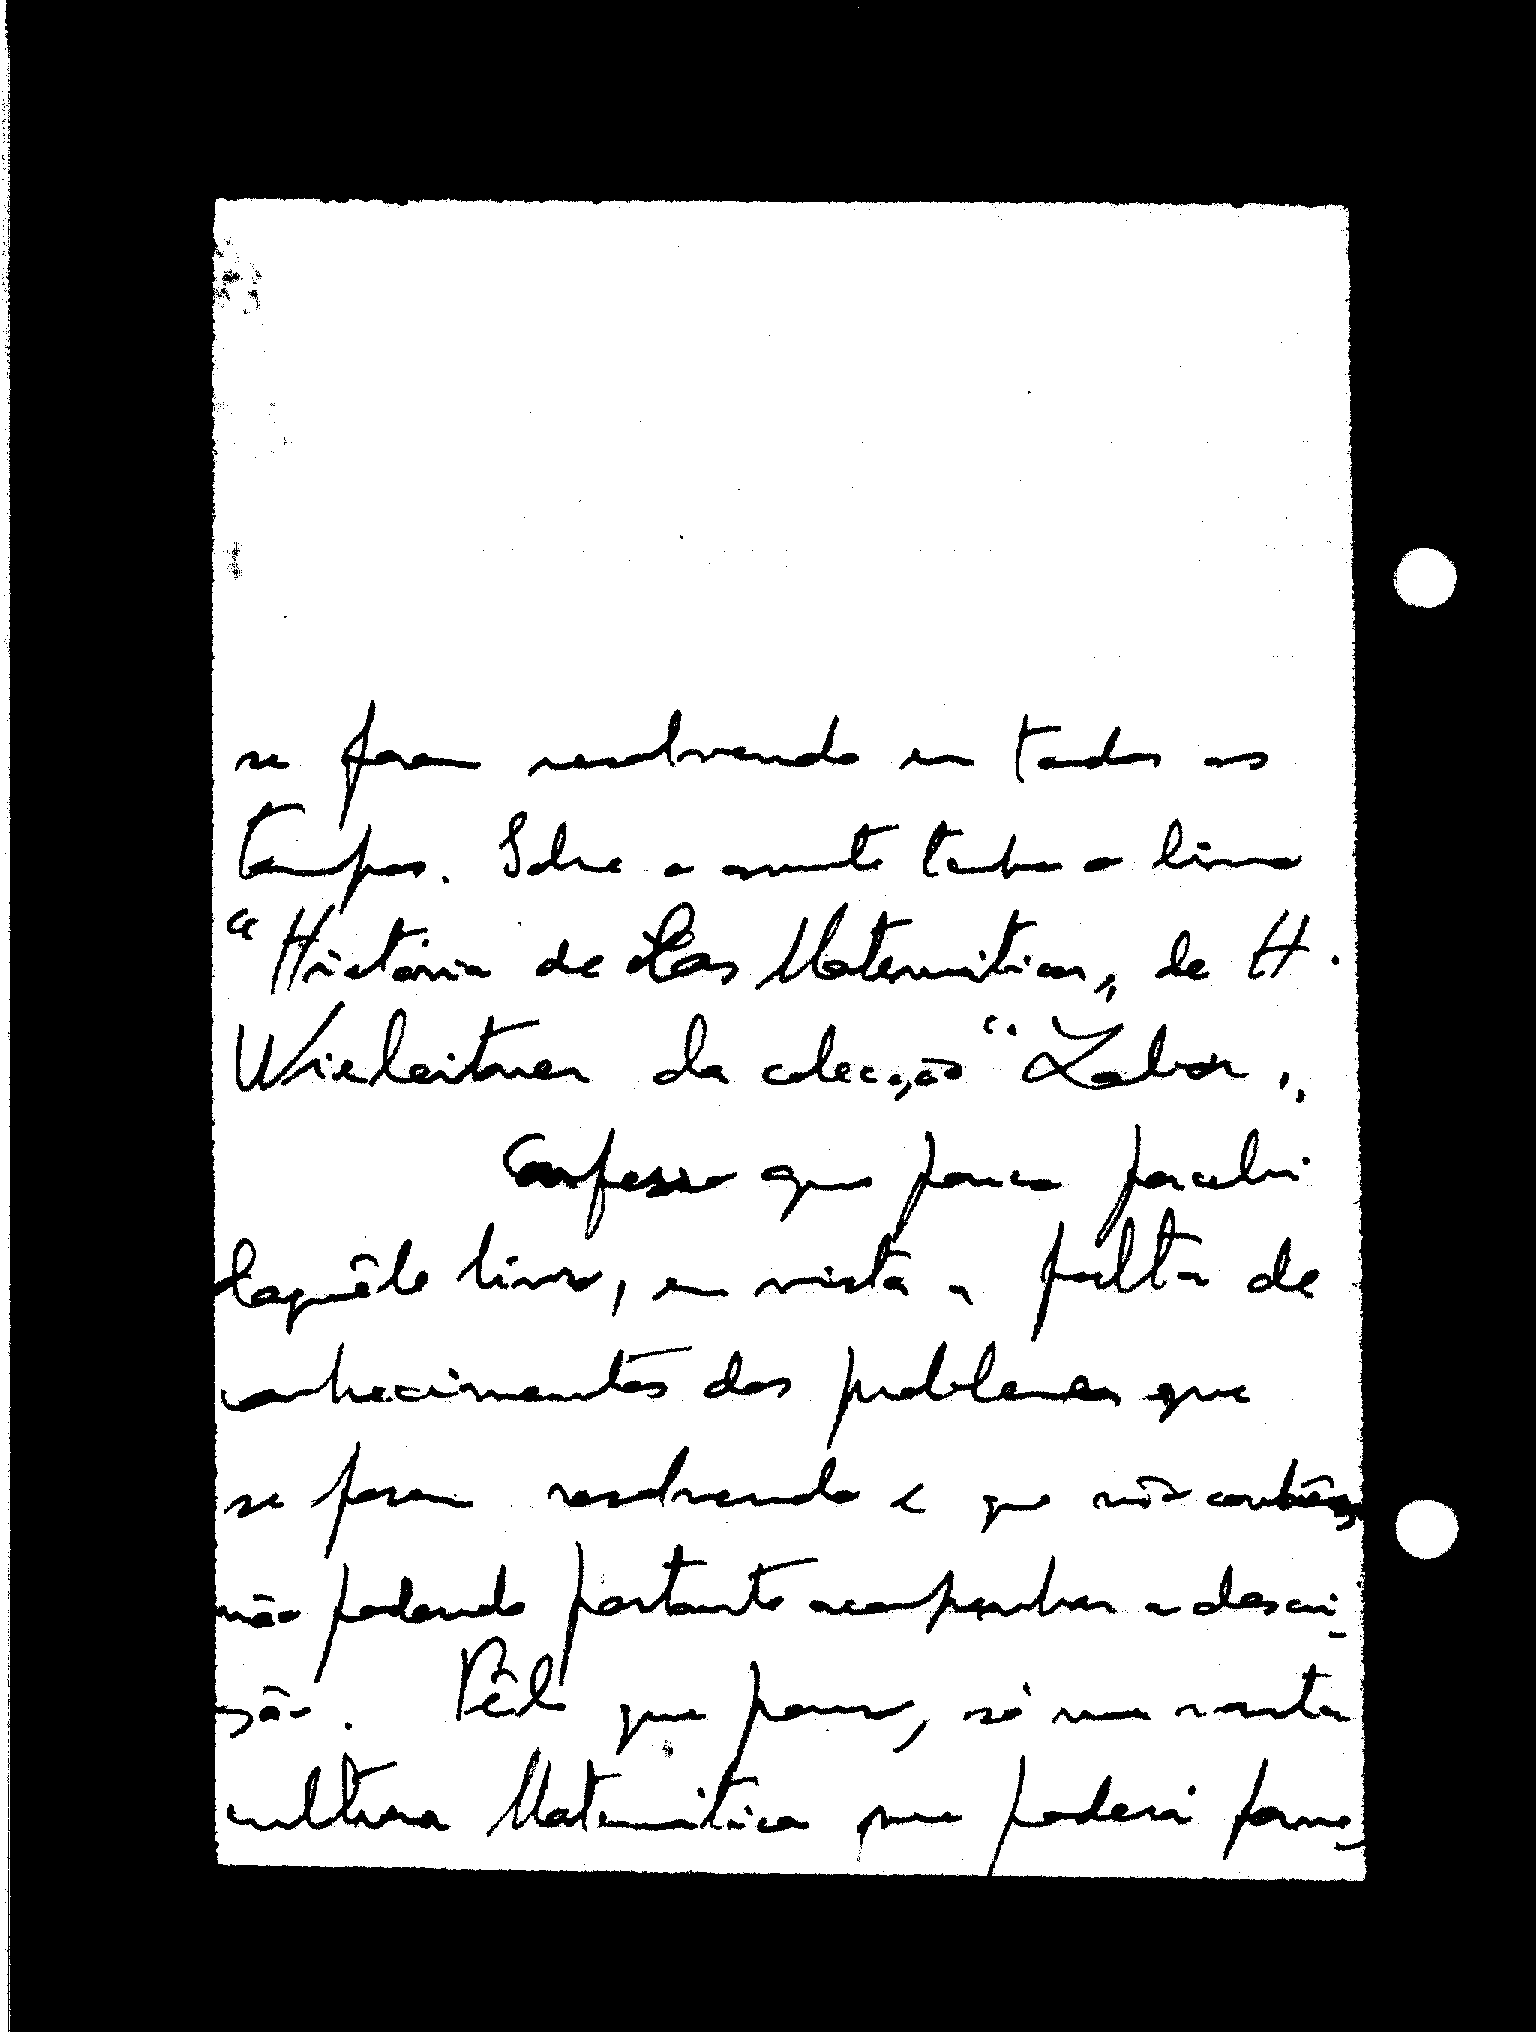 se foram resolvendo em todos os
tempos. Sobre o assunto tenho o livro
"História de Las Matemáticas„ de H.
Wieleitner da colecção "Labor„
Confesso que pouco percebi
daquêle livro, em vista a falta de
conhecimentos dos problemas que
se foram resolvendo e que não
não podendo portanto acompanhar a descri-
ção. Pêlo que penso, só uma vasta
cultura Matemática me poderá forne-